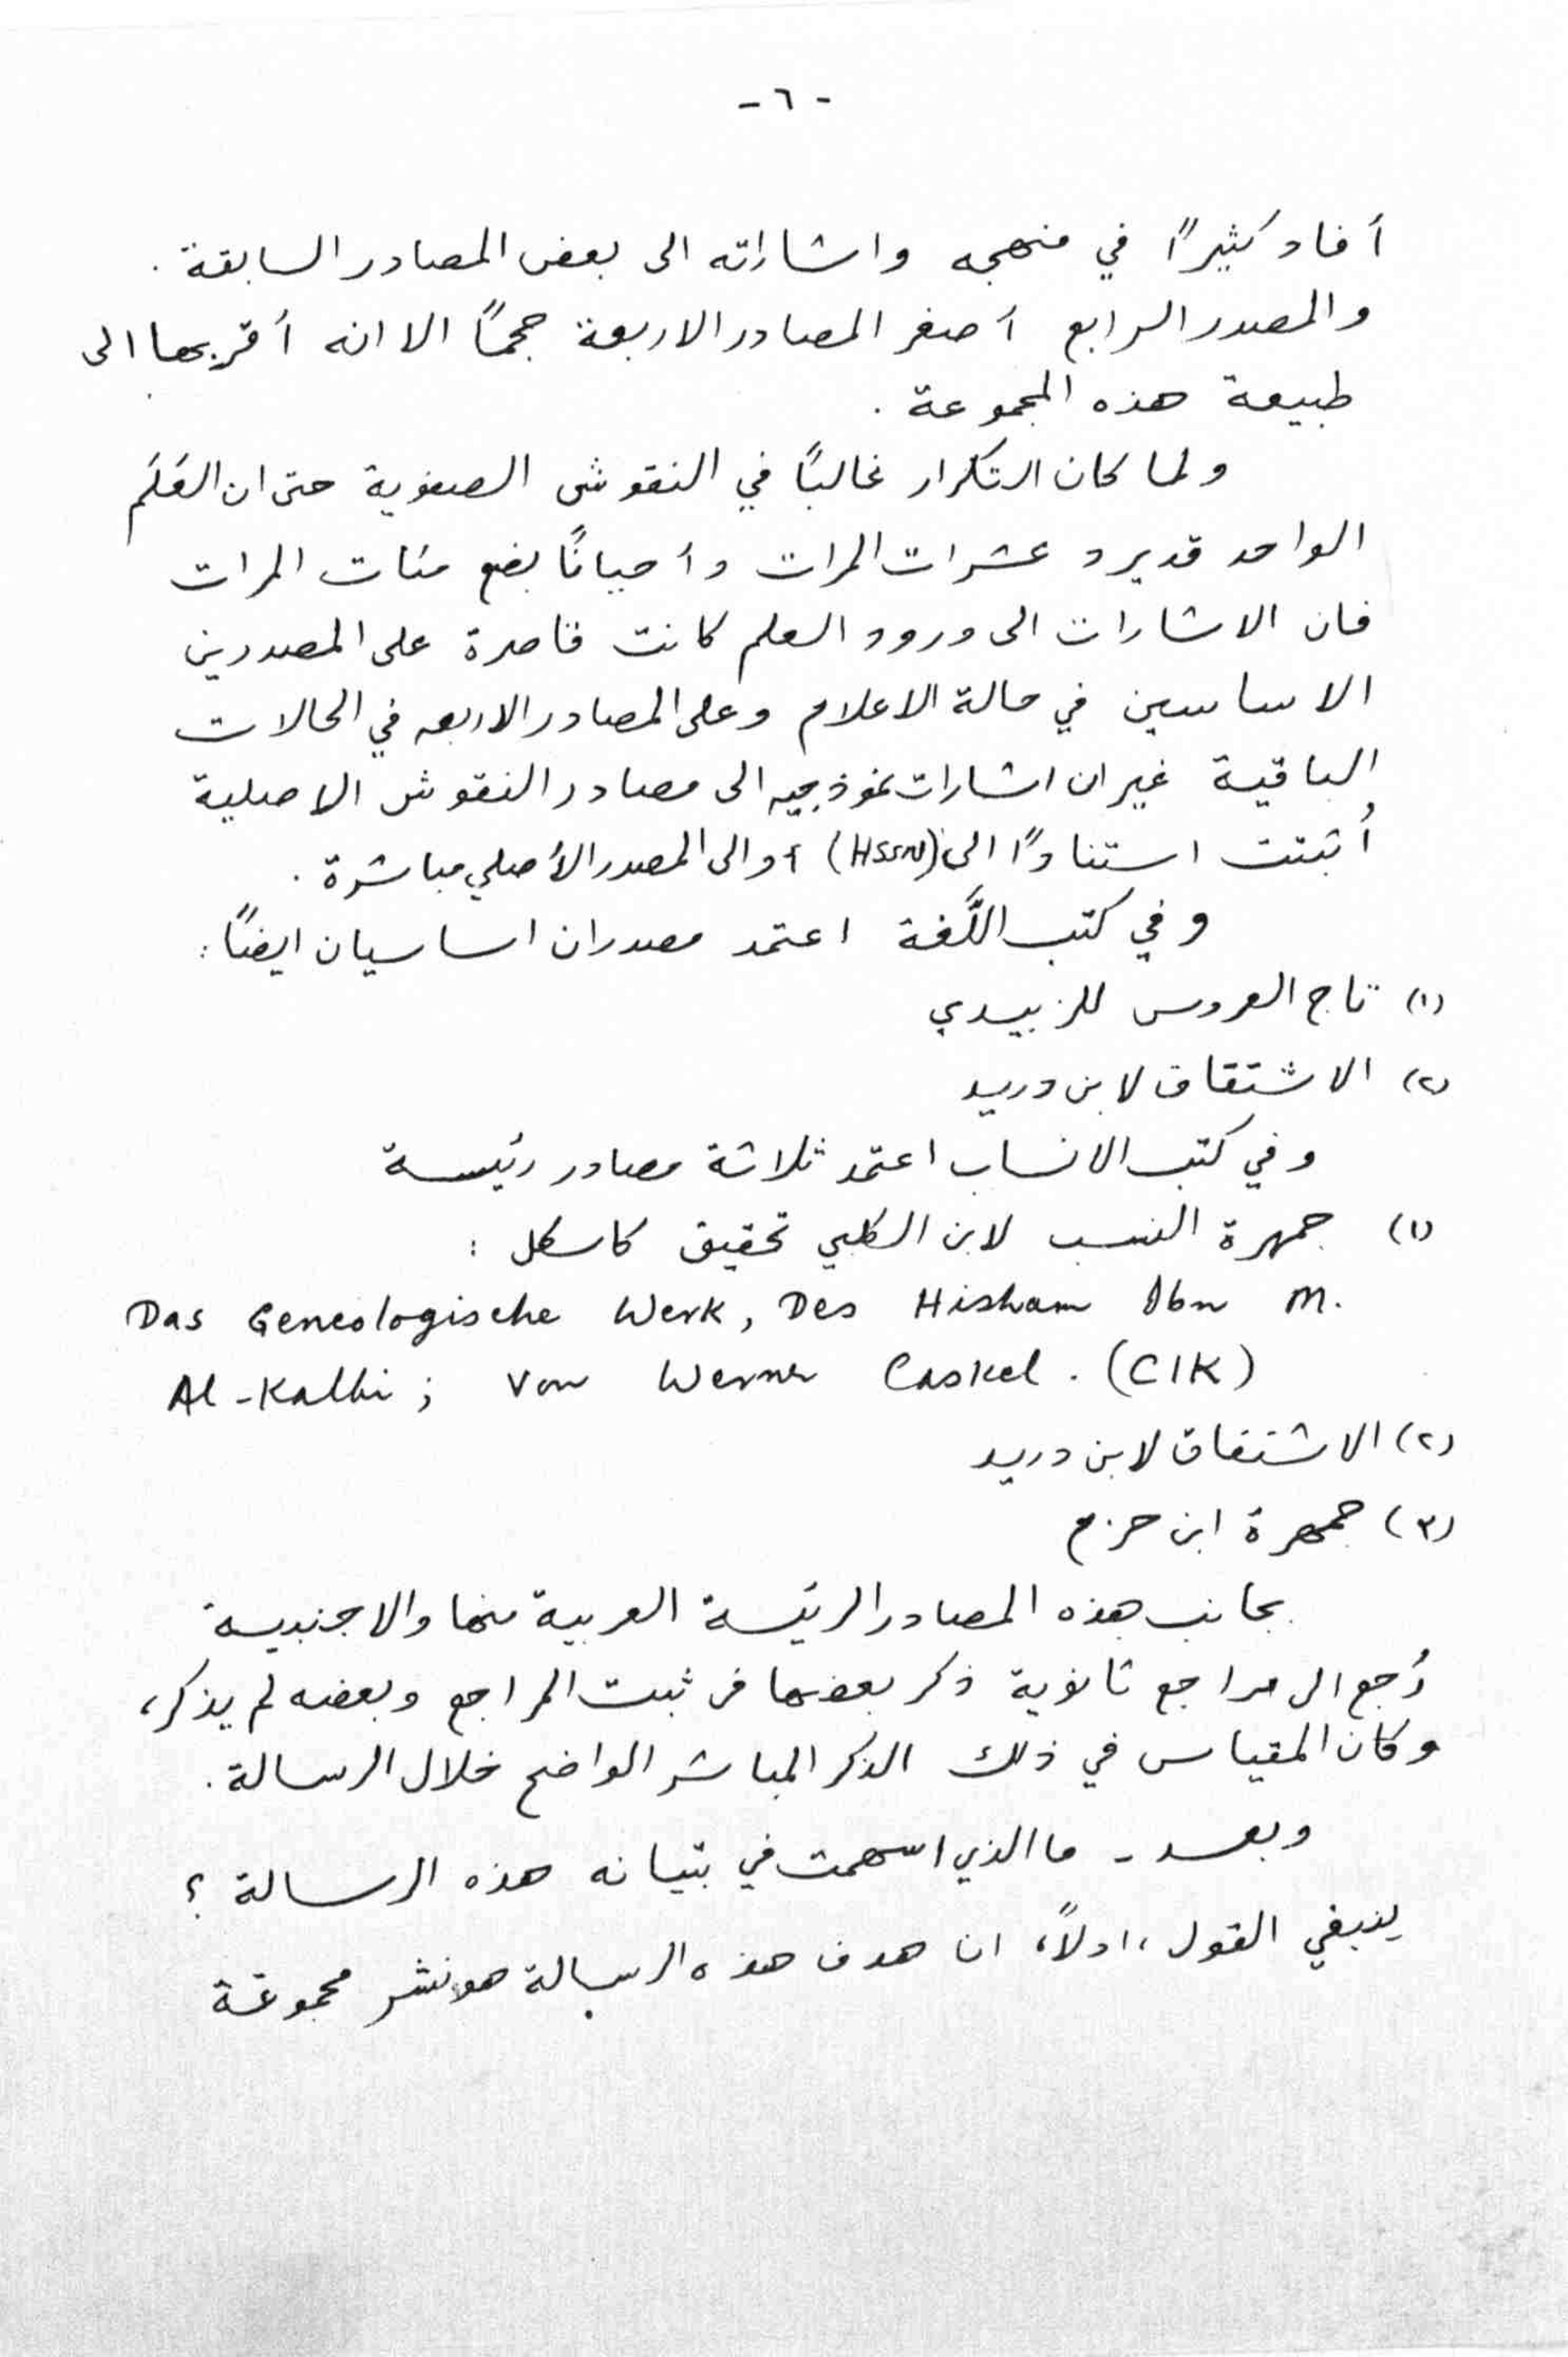 - ٦ -
أفاد كثيراً في منهجه واشاراته الى بعض المصادر السابقة .
والمصدر الرابع أصغر المصادر الاربعة حجماً الا انه أقربها الى
طبيعة هذه المجموعة .
ولما كان التكرار غالباً في النقوش الصفوية حتى ان العَلَم
الواحد قد يرد عشرات المرات وأحياناً بضع مئات المرات
فان الاشارات الى ورود العلم كانت قاصرة على المصدرين
الاساسين في حالة الاعلام وعلى المصادر الاربعه في الحالات
الباقية غير ان اشارات نموذجيه الى مصادر النقوش الاصلية
أُثبتت استناداً الى (HSSN) أو الى المصدر الأصلي مباشرة .
وفي كتب اللَّغة اعتمد مصدران اساسيان ايضاً :
(١) تاج العروس للزبيدي
(٢) الاشتقاق لابن دريد
وفي كتب الانساب اعتمد ثلاثة مصادر رئيسة
(١) جمهرة النسب لابن الكلبي تحقيق كاسكل :
Das Geneologische Werk, Des Hisham Ibn M.
Al-Kalbi ; Von Werner Caskel . (CIK)
(٢) الاشتقاق لابن دريد
(٣) جمهرة ابن حزم
بجانب هذه المصادر الرئيسة العربية منها والاجنبية
رُجع الى مراجع ثانوية ذكر بعضها في ثبت المراجع وبعضه لم يذكر،
وكان المقياس في ذلك الذكر المباشر الواضح خلال الرسالة .
وبعد - ما الذي اسهمت في تبيانه هذه الرسالة ؟
ينبغي القول، اولاً، ان هدف هذه الرسالة هو نشر مجموعة